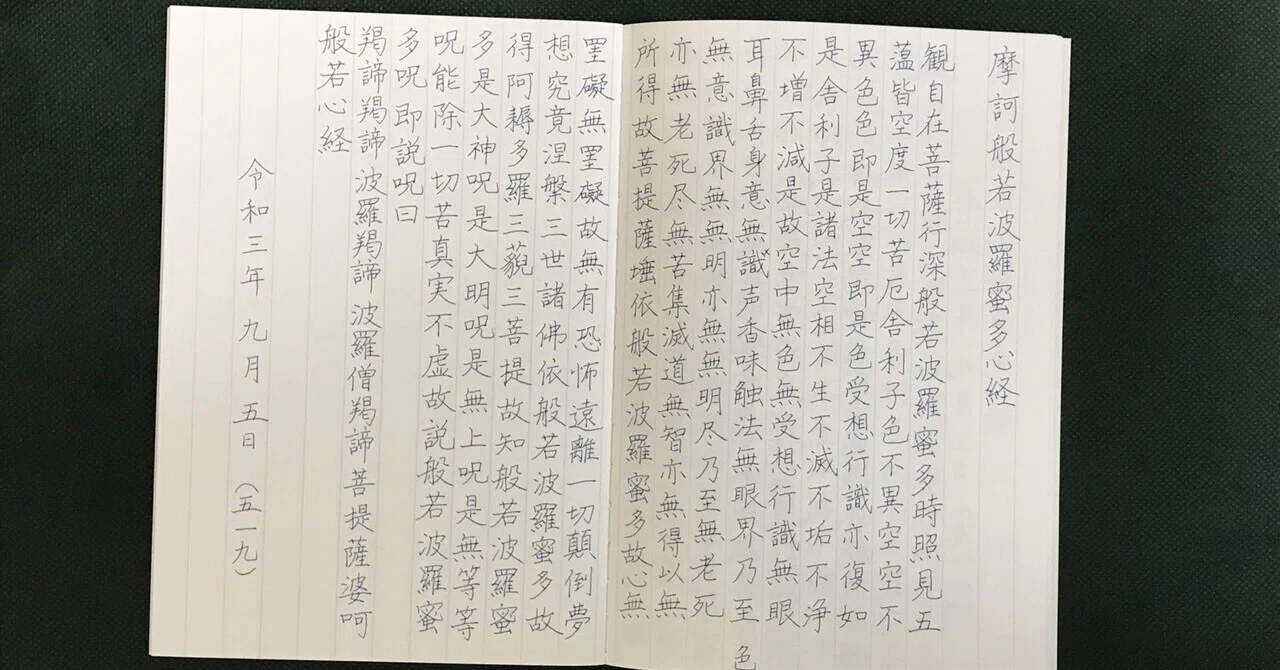 摩訶般若波羅蜜多心経
観自在菩薩行深般若波羅蜜多時照見五
薀皆空度一切苦厄舎利子色不異空空不
異色色即是空空即是色受想行識亦復如
是舎利子是諸法空相不生不滅不垢不浄
不増不減是故空中無色無受想行識無眼
耳鼻舌身意無識×声香味触法無眼界乃至
色
無意識界無無明亦無無明尽乃至無老死
亦無老死尽無苦集滅道無智亦無得以無
所得故菩提薩埵依般若波羅蜜多故心無
罣礙無罣礙故無有恐怖遠離一切顛倒夢
想究竟涅槃三世諸佛依般若波羅蜜多故
得阿耨多羅三藐三菩提故知般若波羅蜜
多是大神呪是大明呪是無上呪是無等等
呪能除一切苦真実不虚故説般若波羅蜜
多呪即説呪曰
羯諦羯諦 波羅羯諦 波羅僧羯諦 菩提薩婆呵
般若心経
令和三年 九月 五日(五一九)